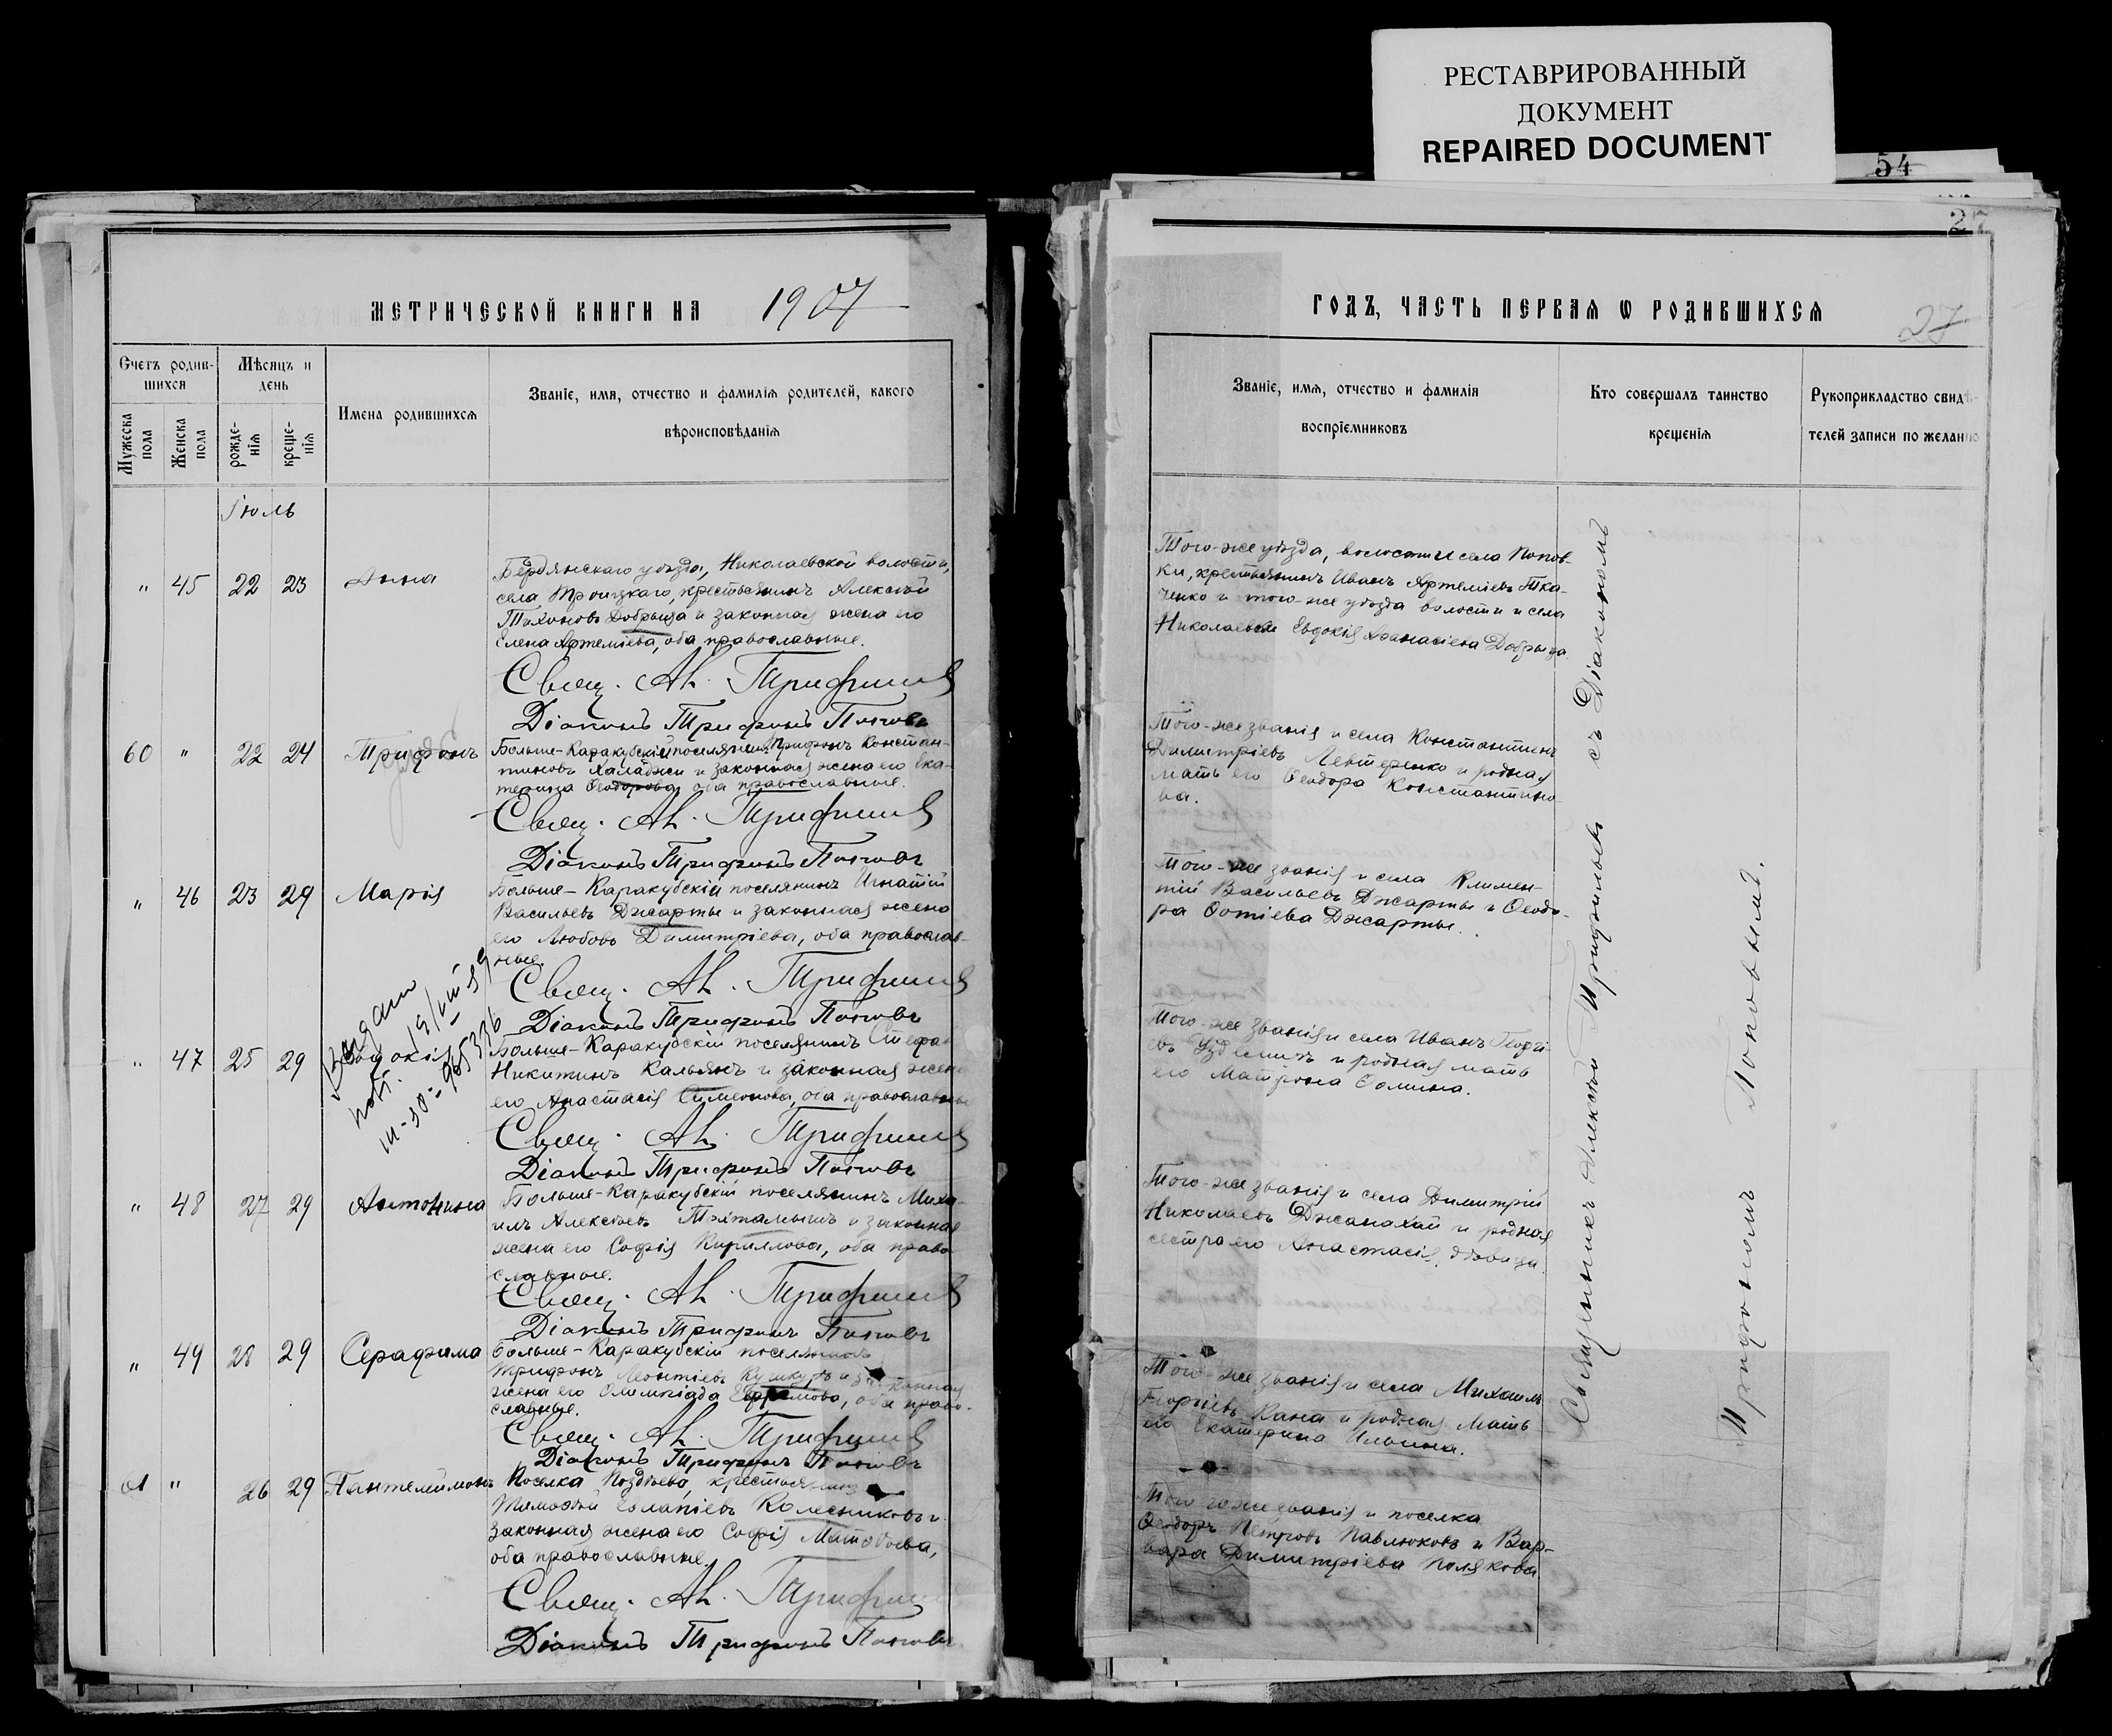 РЕСТАВРИРОВАННЫЙ
ДОКУМЕНТ
REPAIRED DOCUMENT
54
27
МЕТРИЧЕСКОЙ КНИГИ НА 1907
Счетъ родив-
шихся
Мѣсяцъ и
день
Мужеска
пола
Женска
пола
рожде-
нія
креще-
нія
Имена родившихся
Званіе, имя, отчество и фамилія родителей, какого
вѣроисповѣданія
Іюль
" 45 22 23 Анна
Бердянскаго уѣзда, Николаевской волости,
села Троицкаго, крестьянинъ Алексѣй
Тихоновъ Добрыца и законная жена его
Елена Артеміева, оба православные.
Свящ. Ал. Трифильевъ
Діаконъ Трифонъ Поповъ
60 " 22 24 Трифонъ
Больше-Каракубскій поселянинъ Трифонъ Констан-
тиновъ Халаджи и законная жена его Ека-
терина Ѳеодорова, оба православные.
Свящ. Ал. Трифильевъ
Діаконъ Трифонъ Поповъ
" 46 23 29 Марія
Больше-Каракубскій поселянинъ Игнатій
Васильевъ Джарты и законная жена
его Любовь Димитріева, оба православ-
ные.
Свящ. Ал. Трифильевъ
Діаконъ Трифонъ Поповъ
" 47 25 29 Евдокія
Больше-Каракубскій поселянинъ Стефанъ
Никитинъ Кальянъ и законная жена
его Анастасія Симеонова, оба православные
Свящ. Ал. Трифильевъ
Діаконъ Трифонъ Поповъ
" 48 27 29 Антонина
Больше-Каракубскій поселянинъ Миха-
илъ Алексѣевъ и законная
жена его Софія Кириллова, оба право-
славные.
Свящ. Ал. Трифильевъ
Діаконъ Трифонъ Поповъ
" 49 28 29 Серафима
Больше-Каракубскій поселянинъ
Трифонъ Леонтіевъ и законная
жена его Олимпіада Ефремова, оба право-
славные.
Свящ. Ал. Трифильевъ
Діаконъ Трифонъ Поповъ
61 " 26 29 Пантелеймонъ
Поселка Поздѣева, крестьянинъ
Тимоѳей Евлапіевъ Колесниковъ и
законная жена его Софія Матѳѣева,
оба православные.
Свящ. Ал. Трифильевъ
Діаконъ Трифонъ Поповъ
ГОДЪ, ЧАСТЬ ПЕРВАЯ Ѡ РОДИВШИХСЯ
27
Званіе, имя, отчество и фамилія
воспріемниковъ
Кто совершалъ таинство
крещенія
Рукоприкладство свидѣ-
телей записи по желанію
Того-же уѣзда, волости и села Попов-
ки, крестьянинъ Иванъ Артеміевъ Тка-
ченко и того-же уѣзда волости и села
Николаевки Евдокія Аѳанасіева Добрыца.
Того-же званія и села Константинъ
Димитріевъ Левтеренко и родная
мать его Ѳеодора Константино-
ва.
Того-же званія и села Климен-
тій Васильевъ Джарты и Ѳеодо-
ра Ѳотіева Джарты.
Того-же званія и села Иванъ Георгі-
евъ и родная мать
его Матрона Ѳомина.
Того-же званія и села Димитрій
Николаевъ Джанахай и родная
сестра его Анастасія, дѣвица.
Того-же званія и села Михаилъ
Георгіевъ Кана и родная мать
его Екатерина Ильина.
Того-же званія и поселка
Ѳеодоръ Петровъ Павлюковъ и Вар-
вара Димитріева Полякова
Священникъ Алексѣй Трифильевъ съ Діакономъ
Трифономъ Поповымъ.